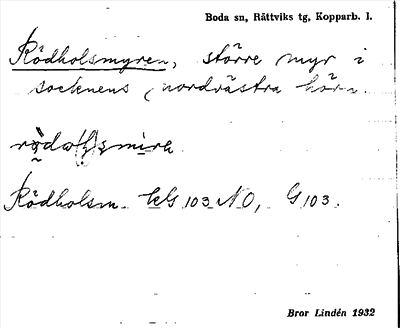 Boda sn, Rättviks tg, Kopparb. l.
Rödholsmyren, större myr i
socknens nordvästra hörn.
Rödholsm. NO, G 103.
Bror Lindén 1932